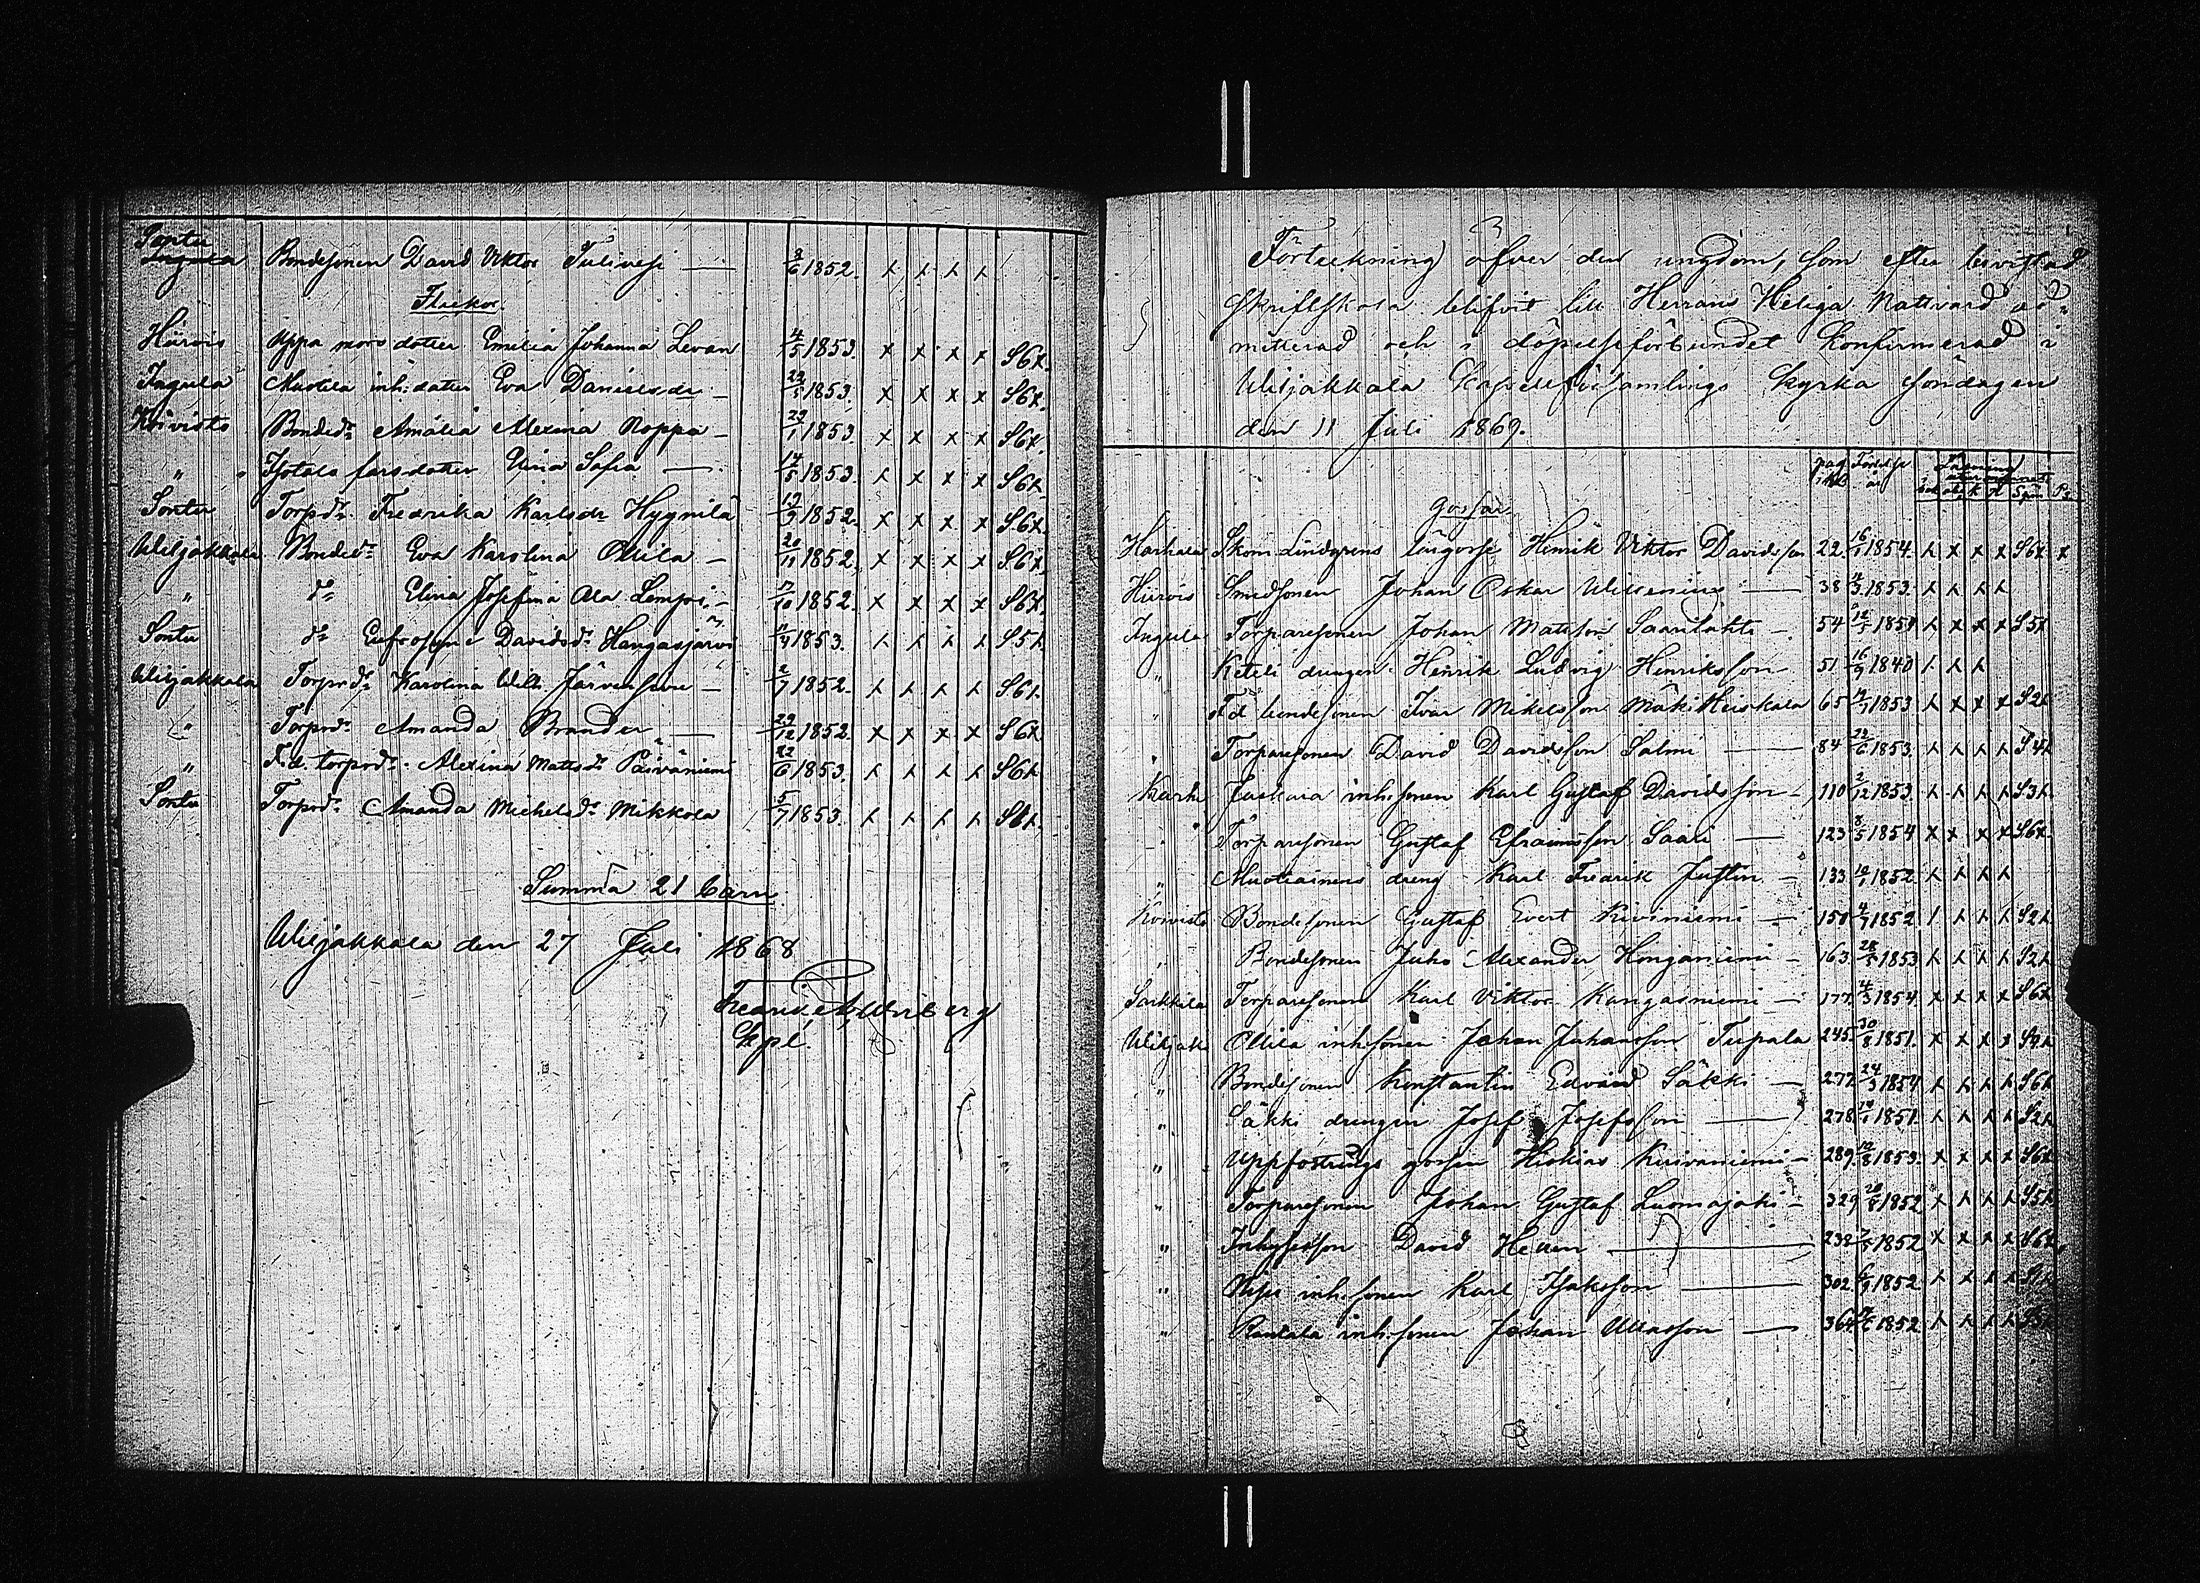 Sontu
Ingula Bondesonen David Viktor Tulivesi — 3/6 1852. x x x x
Flickor.
Häivis Uppa mors dotter Emilia Johanna Levan 4/5 1853 x x x x S6x.
Ingula Muotila inh. dotter Eva Danielsdr — 22/5 1853. x x x x S6x.
Koivisto Bondedr. Amalia Alexina Roppa — 29/1 1853. x x x x S6x.
" " Isotalo farsdotter Sofia — 14/5 1853. x x x x S6x.
Sontu Torpdr. Fredrika Karlsdr Hygnilä 19/9 1852. x x x x S6x.
Wiljakkala Bondedr. Eva Karolina Ollila — 20/11 1852. x x x x S6x.
" do Elina Josefina Ala Lempi — /10 1852. x x x x S6x.
Sontu do Eufrosyne Davidsdr. Hangasjärvi 11/4 1853. x x x x S5x
Wiljakkala Torprdr. Karolina Wilh. Järvensivu — 2/7 1852. x x x x S6x.
" Torprdr. Amanda Brander — 29/12 1852. x x x x S6x
" F.d. torprdr. Alexina Mattsdr Päiväniemi 22/6 1853. x x x x S6x
Sontu Torprdr. Amanda Michelsdr. Mikkola 5/7 1853. x x x x S6x.
Summa 21 barn
Wiljakkala den 27 Juli 1868
Kpl.
Förteckning öfver den ungdom, som efter bevistad
skriftskola blifvit till Herrans Heliga Nattvard ad-
mitterad och i döpelseförbundet konfirmerad i
Wiljakkala Kapellförsamlings kyrka söndagen
den 11 Juli 1869.
pag. Födelse Läsning
i KB år
Gossar.
Harhala Skom. Lindgrens lärgosse Henrik Viktor Davidsson 22. 16/1 1854. x x x x S6x x
Häivis Smedsonen Johan Oskar Willenius — 38 4/3 1853. x x x x
Ingula Torparesonen Johan Mattsson Saarilahti — 54 12/5 1854 x x x x S5x
" Keteli drengen Henrik Ludvig Henriksson 51. 16/9 1840 x x x
" F.d. bondesonen Ivar Mikelsson Mäki Heiskala 65 1853 x x x x S2x
" Torparesonen David Davidsson Salmi — 84 22/6 1853. x x x x S4x
Karhe Juskara inh. sonen Karl Gustaf Davidsson — 110 2/12 1853. x x x x S3x.
" Torparesonen Gustaf Efraimsson Saali — 123 8/5 1854 x x x x S6x.
" Muotiainens dreng Karl Fredrik Justin — 133 10/1 1852. x x x x
Koivisto Bondesonen Gustaf Evert Kiviniemi — 150 4/7 1852 x x x x S2x
" Bondesonen Juho Alexander Honganiemi — 163 28/5 1853 x x x x S2x
Sarkkila Torparesonen Karl Viktor Kangasniemi — 177. 4/3 1854. x x x x S6x
Wiljak. Ollila inh. sonen Johan Johansson Tupala 245 30/8 1851. x x x x S4x
" Bondesonen Konstantin Edvard Säkki — 277. 24/3 1854 x x x x S6x
" Säkki drengen Josef Josefsson — 278 1851. x x x x S2x
" Uppfostrings gossen Hiskias Kuivaniemi — 289. 12/8 1853. x x x x S6x
" Torparesonen Johan Gustaf Luomajoki — 329 20/8 1852 x x x x S5x
" Inhysesson David Hellen — 238 7/5 1852 x x x x S6x
" inh. sonen Karl Isaksson — 302 6/9 1852 x x x x
" Rantala inh. sonen Johan — 364 1852 x x x x